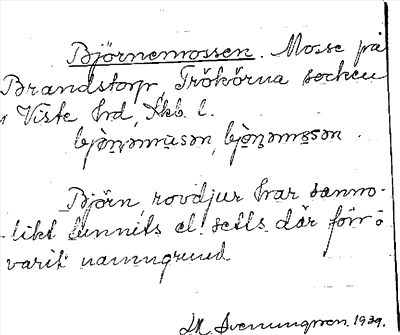 Björnemossen. Mosse på
Brandstorp, Trökörna socken
Viste hd, Skb. l.
Björn rovdjur har sanno-
likt funnits el. setts där förr o
varit namngrund
Svenungsson. 1939.